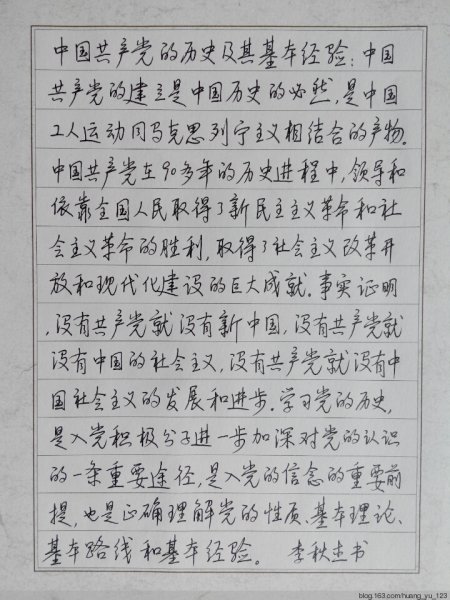 中国共产党的历史及其基本经验：中国
共产党的建立是中国历史的必然，是中国
工人运动同马克思列宁主义相结合的产物。
中国共产党在90多年的历史进程中，领导和
依靠全国人民取得了新民主主义革命和社
会主义革命的胜利，取得了社会主义改革开
放和现代化建设的巨大成就。事实证明
，没有共产党就没有新中国，没有共产党就
没有中国的社会主义，没有共产党就没有中
国社会主义的发展和进步。学习党的历史，
是入党积极分子进一步加深对党的认识
的一条重要途径，是入党的信念的重要前
提，也是正确理解党的性质、基本理论、
基本路线和基本经验。 李秋生书
blog.163.com/huang_yu_123